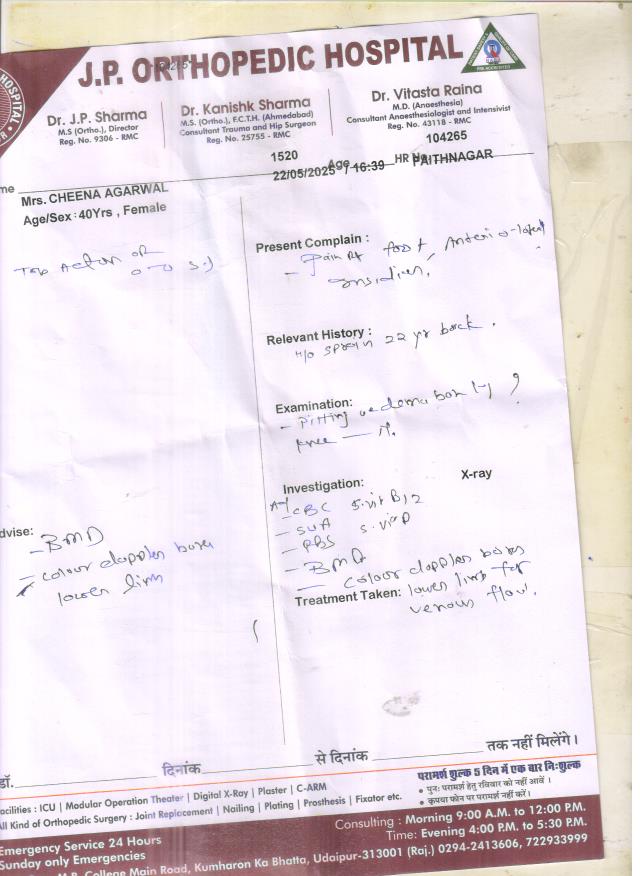 J.P. ORTHOPEDIC HOSPITAL
Dr. J.P. Sharma
M.S (Ortho.), Director
Reg. No. 9306 - RMC
Dr. Kanishk Sharma
M.S. (Ortho.), F.C.T.H. (Ahmedabad)
Consultant Trauma and Hip Surgeon
Reg. No. 25755 - RMC
Dr. Vitasta Raina
M.D. (Anaesthesia)
Consultant Anaesthesiologist and Intensivist
Reg. No. 43118 - RMC
1520
104265
me
Age
HR No
22/05/2025 / 16:39
PAITHNAGAR
Mrs. CHEENA AGARWAL
Age/Sex : 40Yrs , Female
Present Complain :
- pain Rt foot
Relevant History :
H/O sprain 22 yr back .
Examination:
- Pitting
knee
Investigation:
X-ray
- CBC S.vit B12
- SUA S.vit D
- PBS
- BMD
- colour doppler
lower limb for
venous flow.
Treatment Taken:
dvise:
- BMD
- colour doppler
lower limb
डॉ.
दिनांक
से दिनांक
तक नहीं मिलेंगे।
परामर्श शुल्क 5 दिन में एक बार निःशुल्क
• पुनः परामर्श हेतु रविवार को नहीं आवें ।
• कृपया फोन पर परामर्श नहीं करें।
acilities : ICU | Modular Operation Theater | Digital X-Ray | Plaster | C-ARM
All Kind of Orthopedic Surgery : Joint Replacement | Nailing | Plating | Prosthesis | Fixator etc.
Emergency Service 24 Hours
Sunday only Emergencies
Consulting : Morning 9:00 A.M. to 12:00 P.M.
Time: Evening 4:00 P.M. to 5:30 P.M.
College Main Road, Kumharon Ka Bhatta, Udaipur-313001 (Raj.) 0294-2413606, 722933999